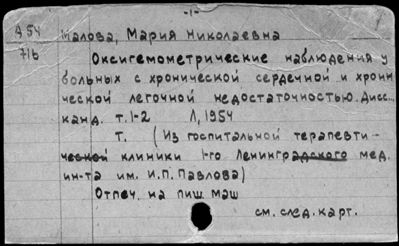 -1-
А 54 Малова, Мария Николаевна
716
Оксигемометрические наблюдения у
больных с хронической сердечной и хрони
ческой легочной недостаточностью. Дисс...
канд. т.1-2 Л, 1954
Т. (Из госпитальной терапевти-
ческой клиники 1-го Ленинградского мед.
ин-та им. И.П. Павлова)
Отпеч. на пиш. маш
см. след. карт.